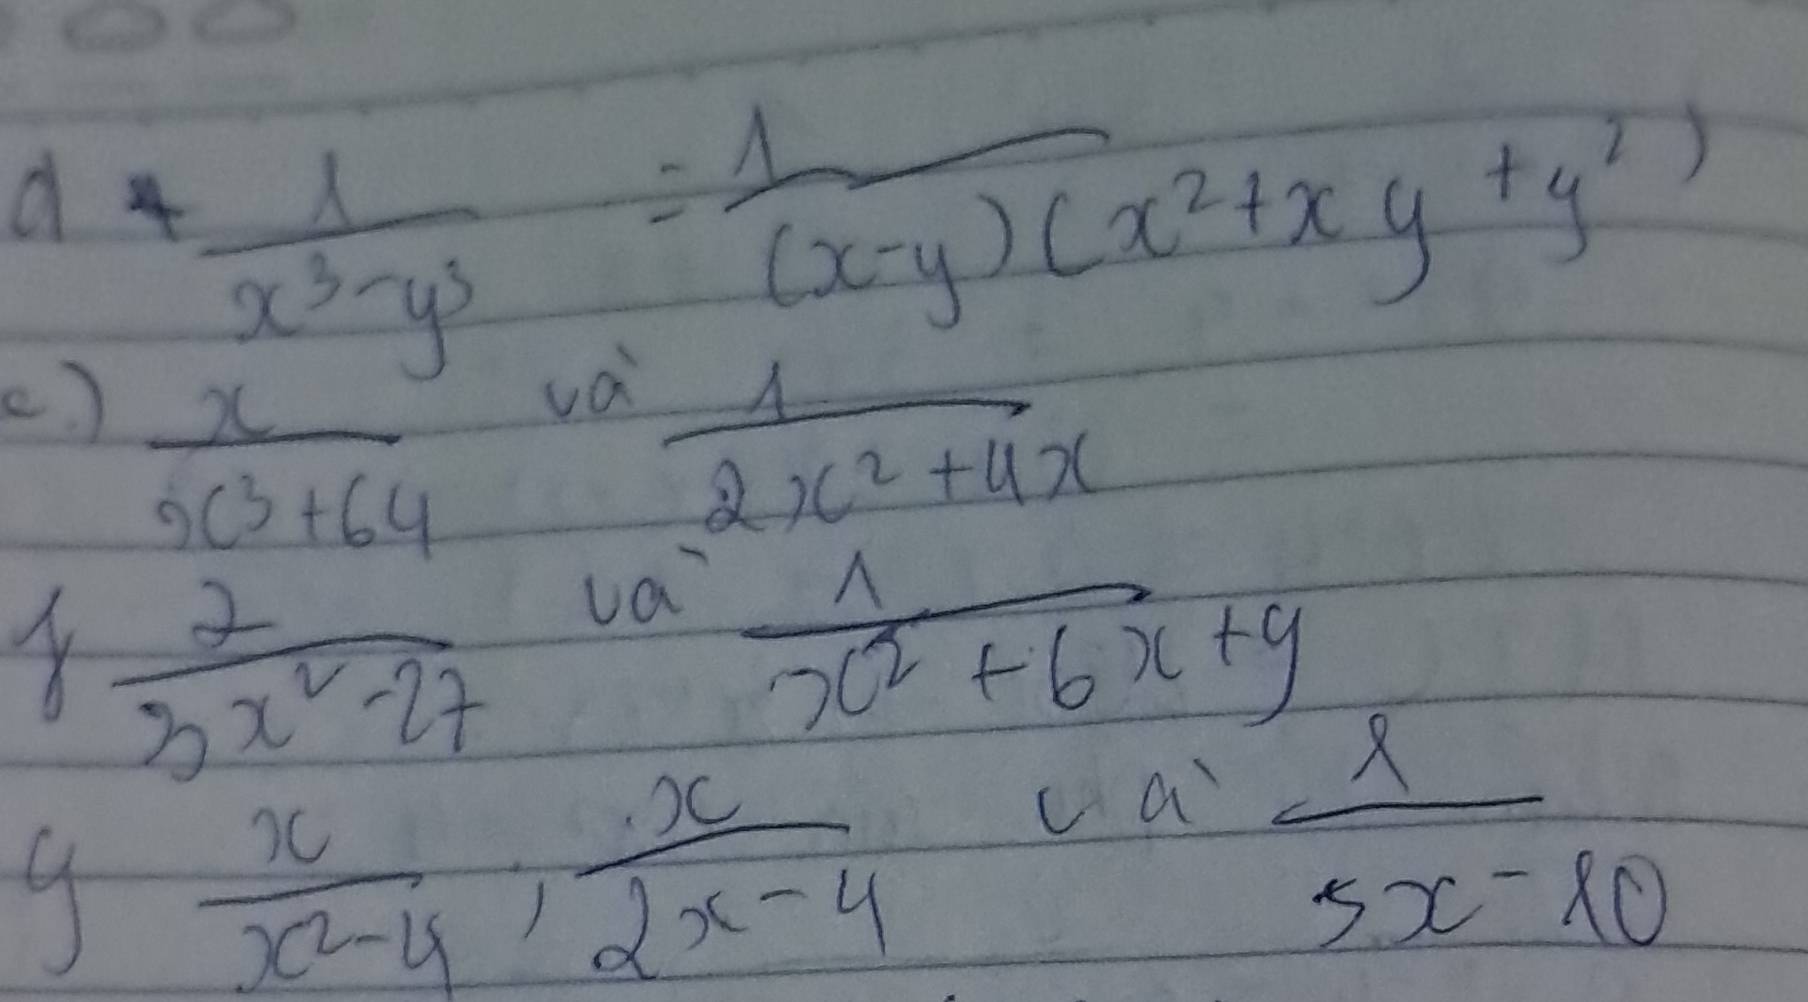 d 1/(x³-y³) = 1/((x-y)(x²+xy+y²))
e.) x/(x³+64) và 1/(2x²+4x)
f 2/(3x²-27) và 1/(x²+6x+9)
g x/(x²-4), x/(2x-4) và 1/(5x-10)